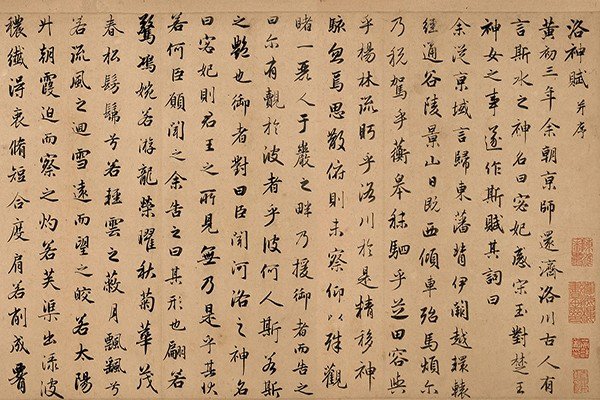 洛神賦 并序
黃初三年余朝京師還濟洛川古人有
言斯水之神名曰宓妃感宋玉對楚王
神女之事遂作斯賦其詞曰
余從京域言歸東藩背伊闕越轘轅
經通谷陵景山日既西傾車殆馬煩尔
乃稅駕乎蘅皋秣駟乎芝田容與
乎楊林流眄乎洛川於是精移神
駭忽焉思散俯則未察仰以殊觀
睹一麗人于巖之畔乃援御者而告之
曰尔有覿於彼者乎彼何人斯若斯
之艷也御者對曰臣聞河洛之神名
曰宓妃則君王之所見無乃是乎其狀
若何臣願聞之余告之曰其形也翩若
驚鴻婉若游龍榮曜秋菊華茂
春松髣髴兮若輕雲之蔽月飄颻兮
若流風之迴雪遠而望之皎若太陽
升朝霞迫而察之灼若芙渠出淥波
穠纖得衷脩短合度肩若削成